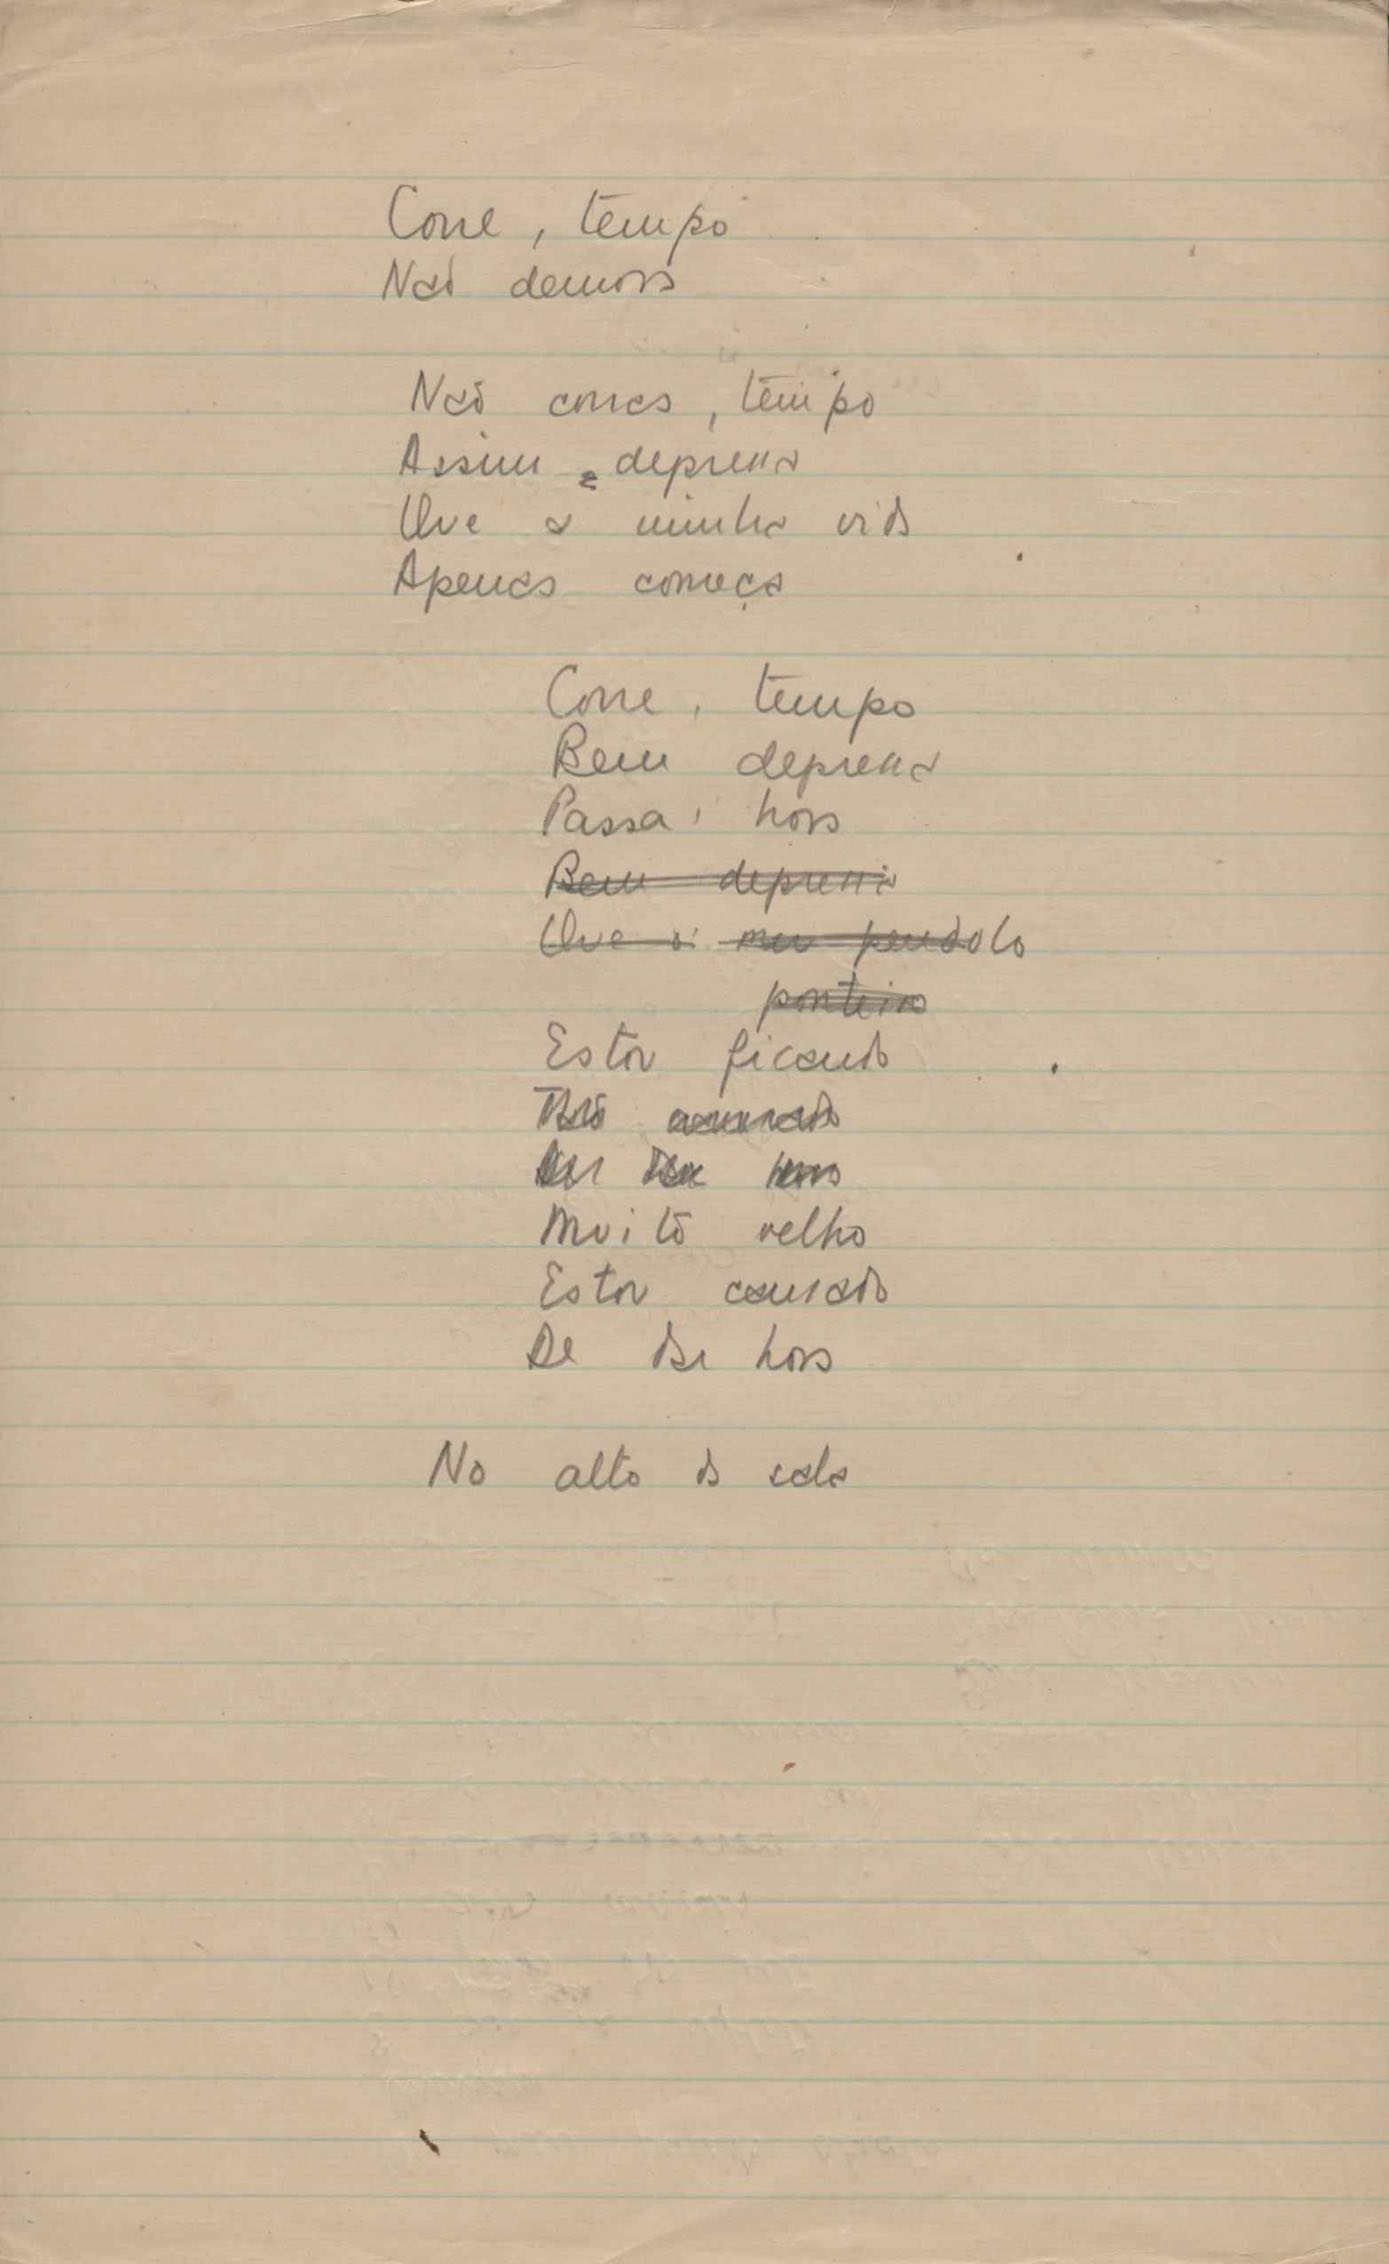 Corre, tempo
Não demora
Não corras, tempo
Assim depressa
Que a minha vida
Apenas começa
Corre, tempo
Bem depressa
Passa, hora
Bem depressa
Que o meu pêndolo
ponteiro
Estou ficando
Tão cansado
De dar hora
Muito velho
Estou cansado
De dar hora
No alto da sala